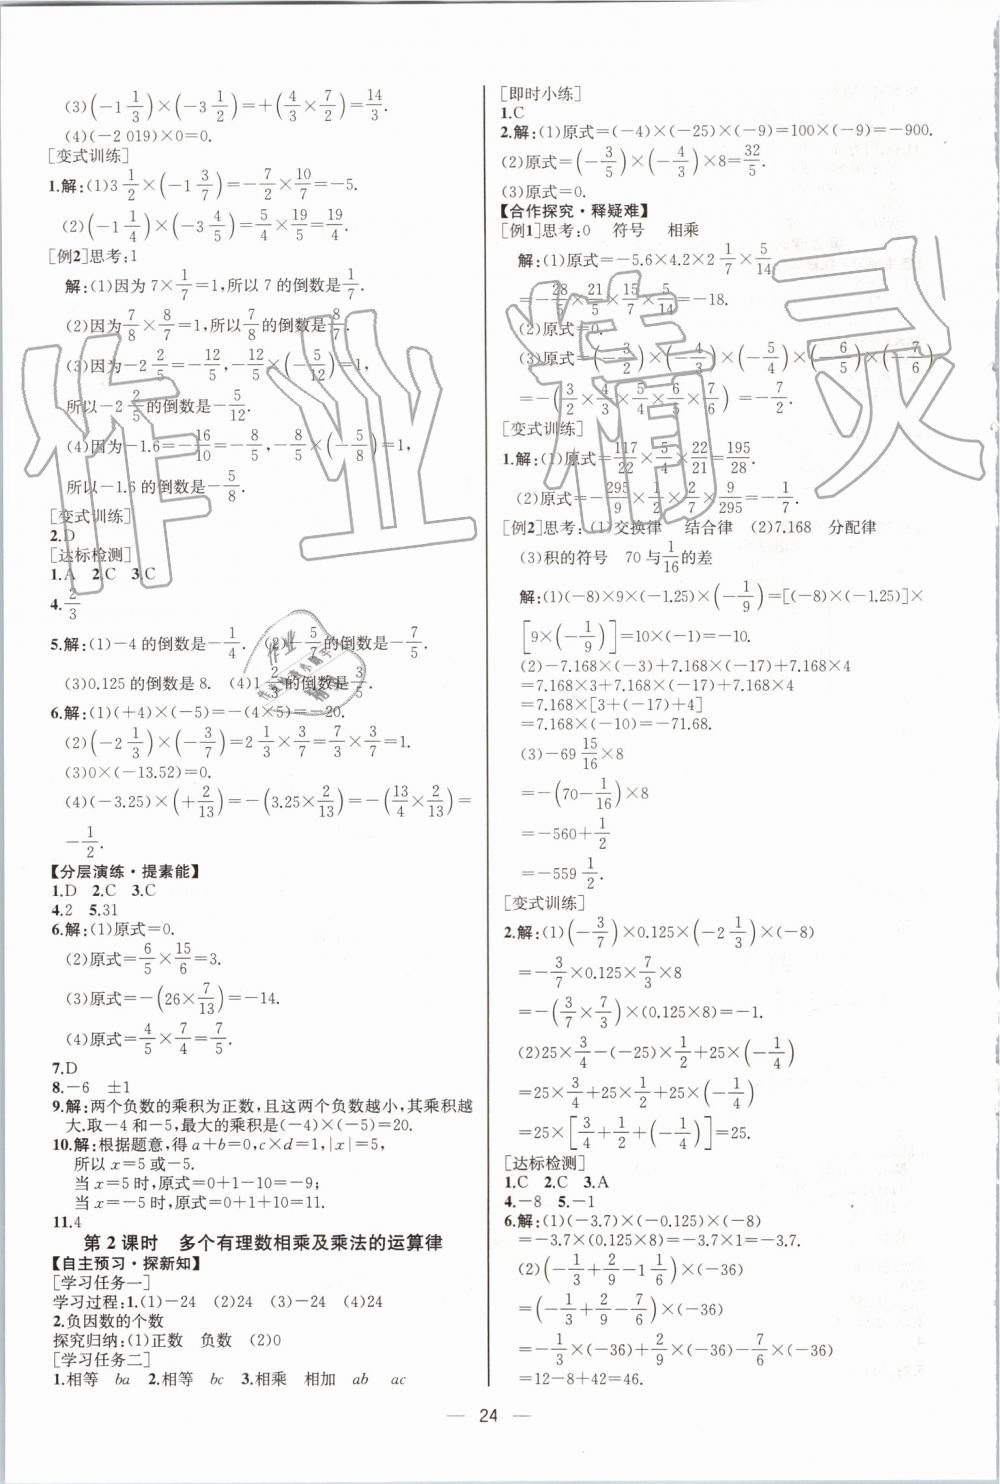 (3)(-1 1/3)×(-3 1/2)=+(4/3×7/2)=14/3.
(4)(-2 019)×0=0.
[变式训练]
1.解:(1)3 1/2×(-1 3/7)=-7/2×10/7=-5.
(2)(-1 1/4)×(-3 4/5)=5/4×19/5=19/4.
[例2]思考:1
解:(1)因为 7×1/7=1,所以 7 的倒数是1/7.
(2)因为7/8×8/7=1,所以7/8的倒数是8/7.
(3)因为-2 2/5=-12/5,-12/5×(-5/12)=1,
所以-2 2/5的倒数是-5/12.
(4)因为-1.6=-16/10=-8/5,-8/5×(-5/8)=1,
所以-1.6 的倒数是-5/8.
[变式训练]
2.D
[达标检测]
1.A 2.C 3.C
4.2/3
5.解:(1)-4 的倒数是-1/4. (2)-5/7的倒数是-7/5.
(3)0.125 的倒数是 8. (4)1 2/3的倒数是3/5.
6.解:(1)(+4)×(-5)=-(4×5)=-20.
(2)(-2 1/3)×(-3/7)=2 1/3×3/7=7/3×3/7=1.
(3)0×(-13.52)=0.
(4)(-3.25)×(+2/13)=-(3.25×2/13)=-(13/4×2/13)=
-1/2.
【分层演练·提素能】
1.D 2.C 3.C
4.2 5.31
6.解:(1)原式=0.
(2)原式=6/5×15/6=3.
(3)原式=-(26×7/13)=-14.
(4)原式=4/5×7/4=7/5.
7.D
8.-6 ±1
9.解:两个负数的乘积为正数,且这两个负数越小,其乘积越
大.取-4 和-5,最大的乘积是(-4)×(-5)=20.
10.解:根据题意,得 a+b=0,c×d=1,|x|=5,
所以 x=5 或-5.
当 x=5 时,原式=0+1-10=-9;
当 x=-5 时,原式=0+1+10=11.
11.4
第 2 课时 多个有理数相乘及乘法的运算律
【自主预习·探新知】
[学习任务一]
学习过程:1.(1)-24 (2)24 (3)-24 (4)24
2.负因数的个数
探究归纳:(1)正数 负数 (2)0
[学习任务二]
1.相等 ba 2.相等 bc 3.相乘 相加 ab ac
[即时小练]
1.C
2.解:(1)原式=(-4)×(-25)×(-9)=100×(-9)=-900.
(2)原式=(-3/5)×(-4/3)×8=32/5.
(3)原式=0.
【合作探究·释疑难】
[例1]思考:0 符号 相乘
解:(1)原式=-5.6×4.2×2 1/7×5/14
=-28/5×21/5×15/7×5/14=-18.
(2)原式=0.
(3)原式=(-3/2)×(-4/3)×(-5/4)×(-6/5)×(-7/6)
=-(3/2×4/3×5/4×6/5×7/6) =-7/2.
[变式训练]
1.解:(1)原式=117/22×5/4×22/21=195/28.
(2)原式=-295/9×1/2×2/7×9/295=-1/7.
[例2]思考:(1)交换律 结合律 (2)7.168 分配律
(3)积的符号 70 与1/16的差
解:(1)(-8)×9×(-1.25)×(-1/9)=[(-8)×(-1.25)]×
[9×(-1/9)]=10×(-1)=-10.
(2)-7.168×(-3)+7.168×(-17)+7.168×4
=7.168×3+7.168×(-17)+7.168×4
=7.168×[3+(-17)+4]
=7.168×(-10)=-71.68.
(3)-69 15/16×8
=-(70-1/16)×8
=-560+1/2
=-559 1/2.
[变式训练]
2.解:(1)(-3/7)×0.125×(-2 1/3)×(-8)
=-3/7×0.125×7/3×8
=-(3/7×7/3)×(0.125×8)=-1.
(2)25×3/4-(-25)×1/2+25×(-1/4)
=25×3/4+25×1/2+25×(-1/4)
=25×[3/4+1/2+(-1/4)]=25.
[达标检测]
1.C 2.C 3.A
4.-8 5.-1
6.解:(1)(-3.7)×(-0.125)×(-8)
=-3.7×(0.125×8)=-3.7×1=-3.7.
(2)(-1/3+2/9-1 1/6)×(-36)
=(-1/3+2/9-7/6)×(-36)
=-1/3×(-36)+2/9×(-36)-7/6×(-36)
=12-8+42=46.
— 24 —
作业精灵